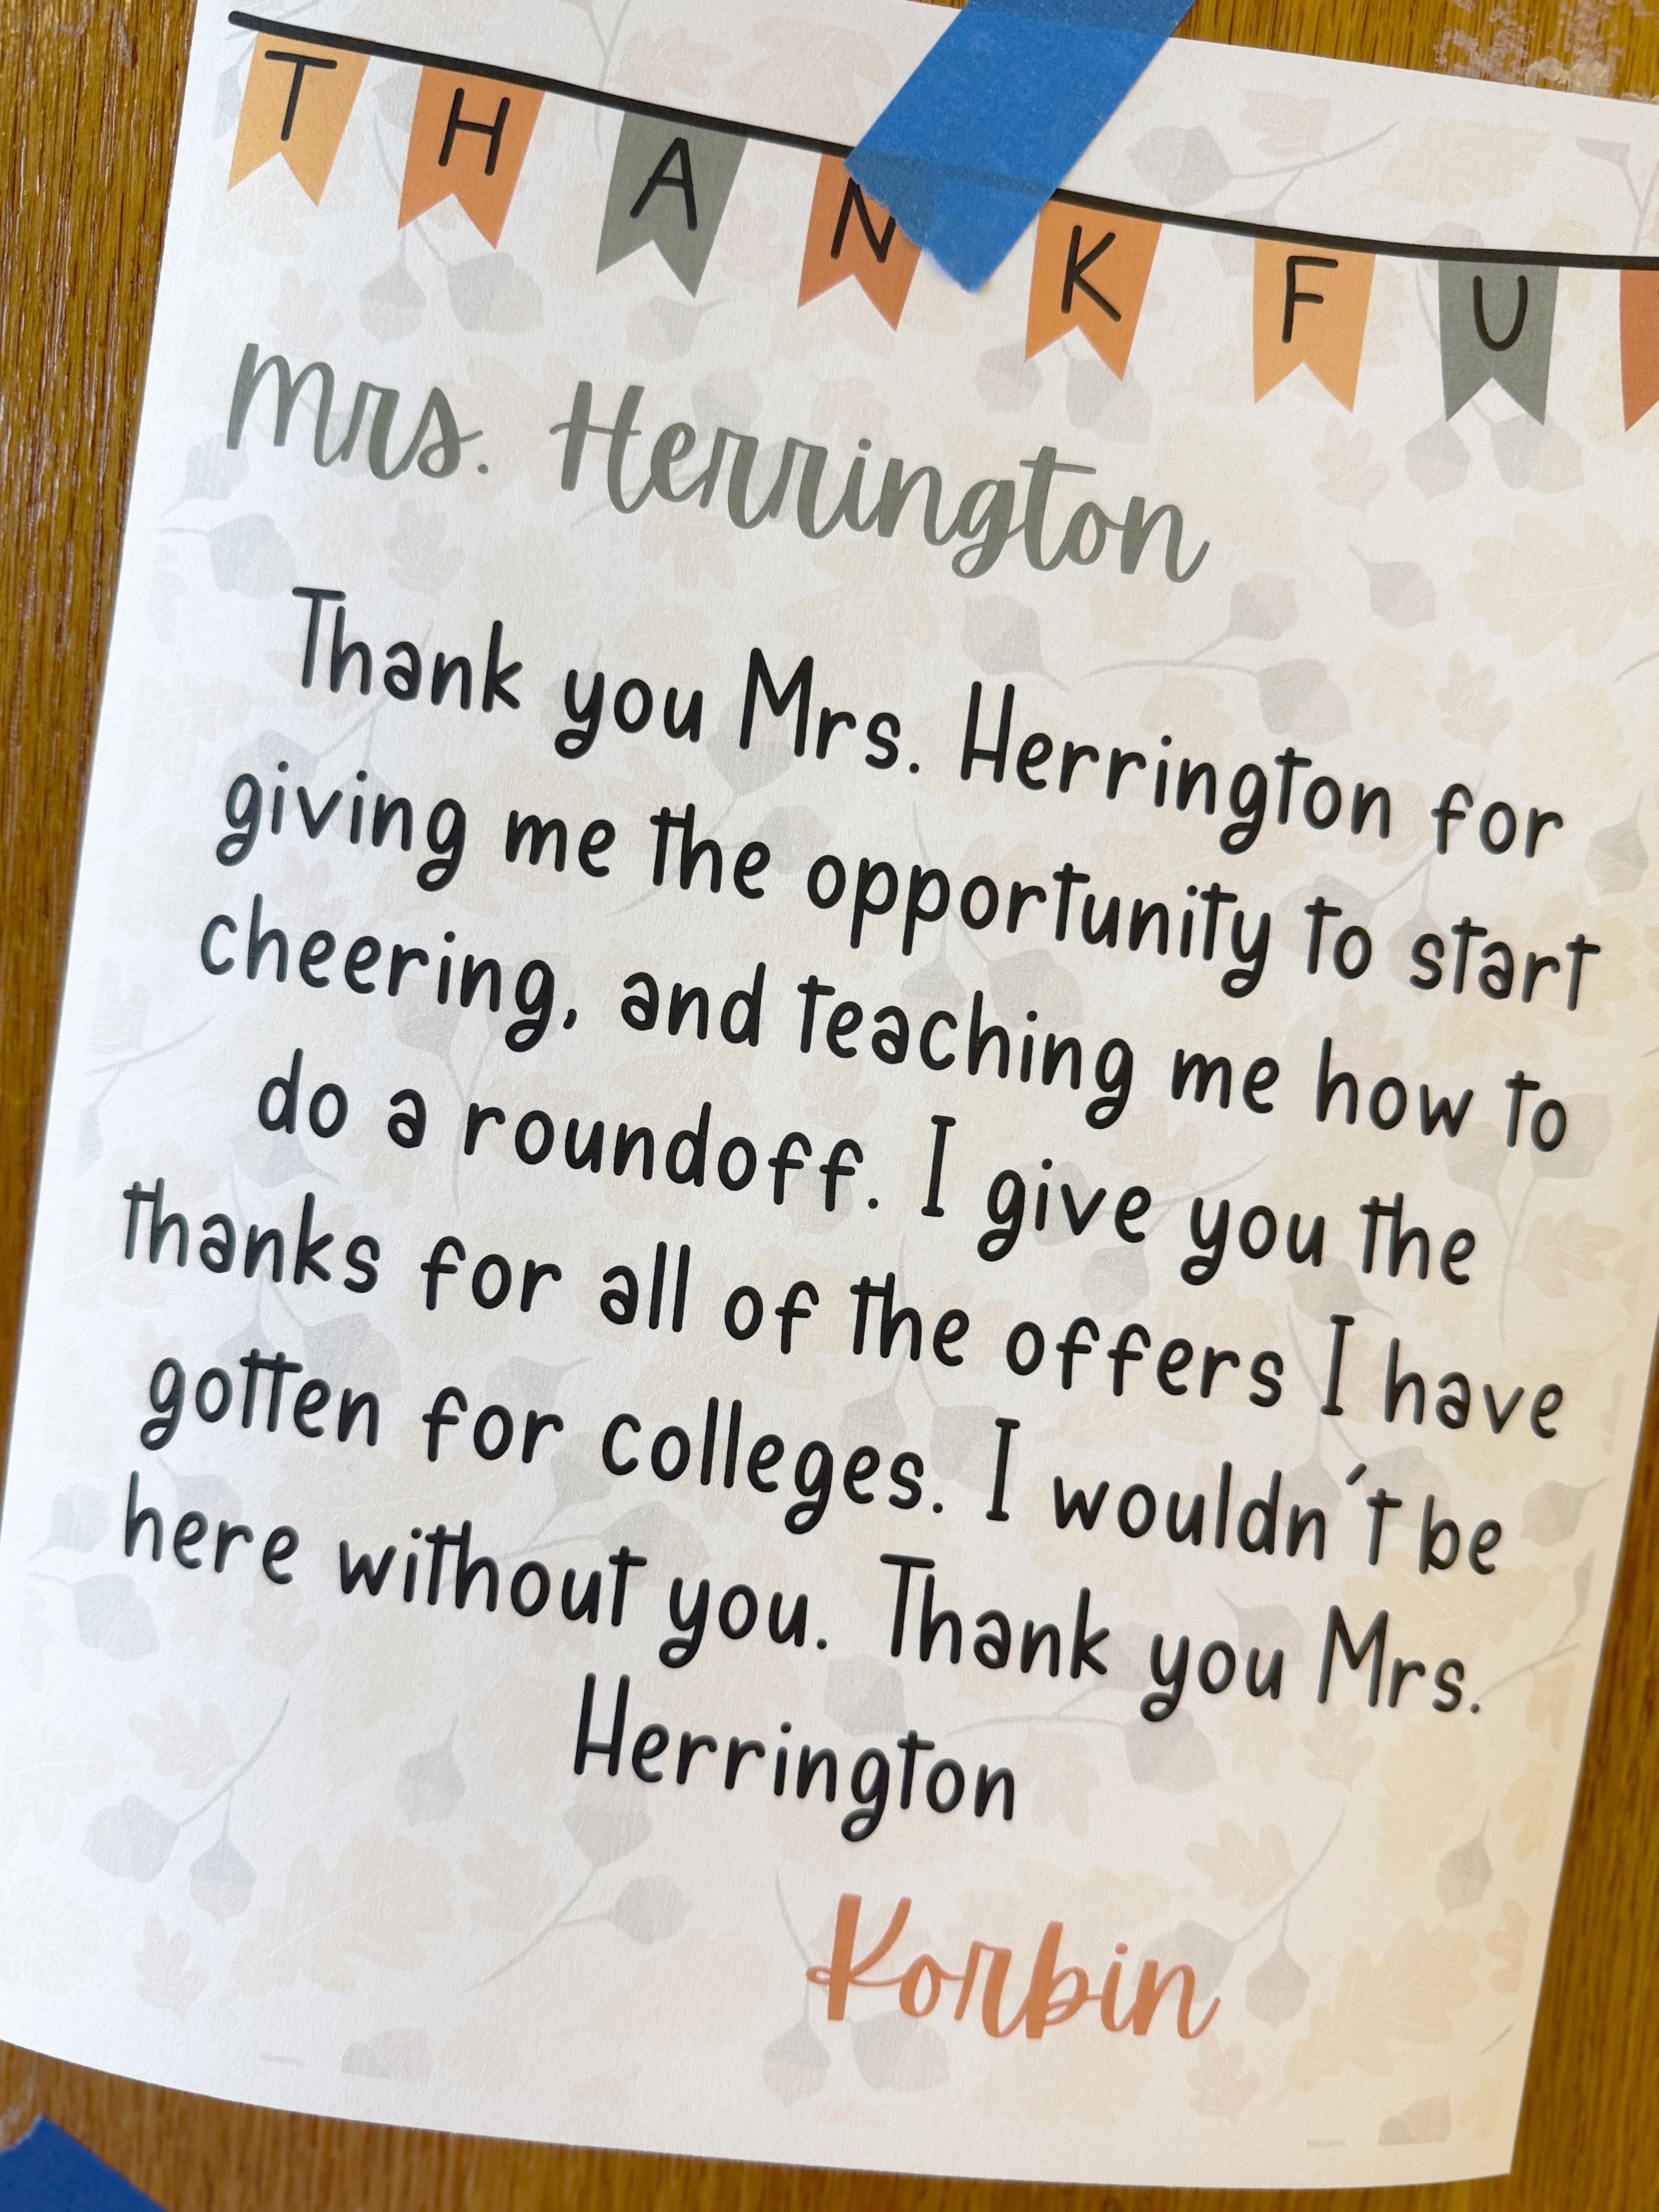 THANKFU
Mrs. Herrington
Thank you Mrs. Herrington for
giving me the opportunity to start
cheering, and teaching me how to
do a roundoff. I give you the
thanks for all of the offers I have
gotten for colleges. I wouldn't be
here without you. Thank you Mrs.
Herrington
Korbin